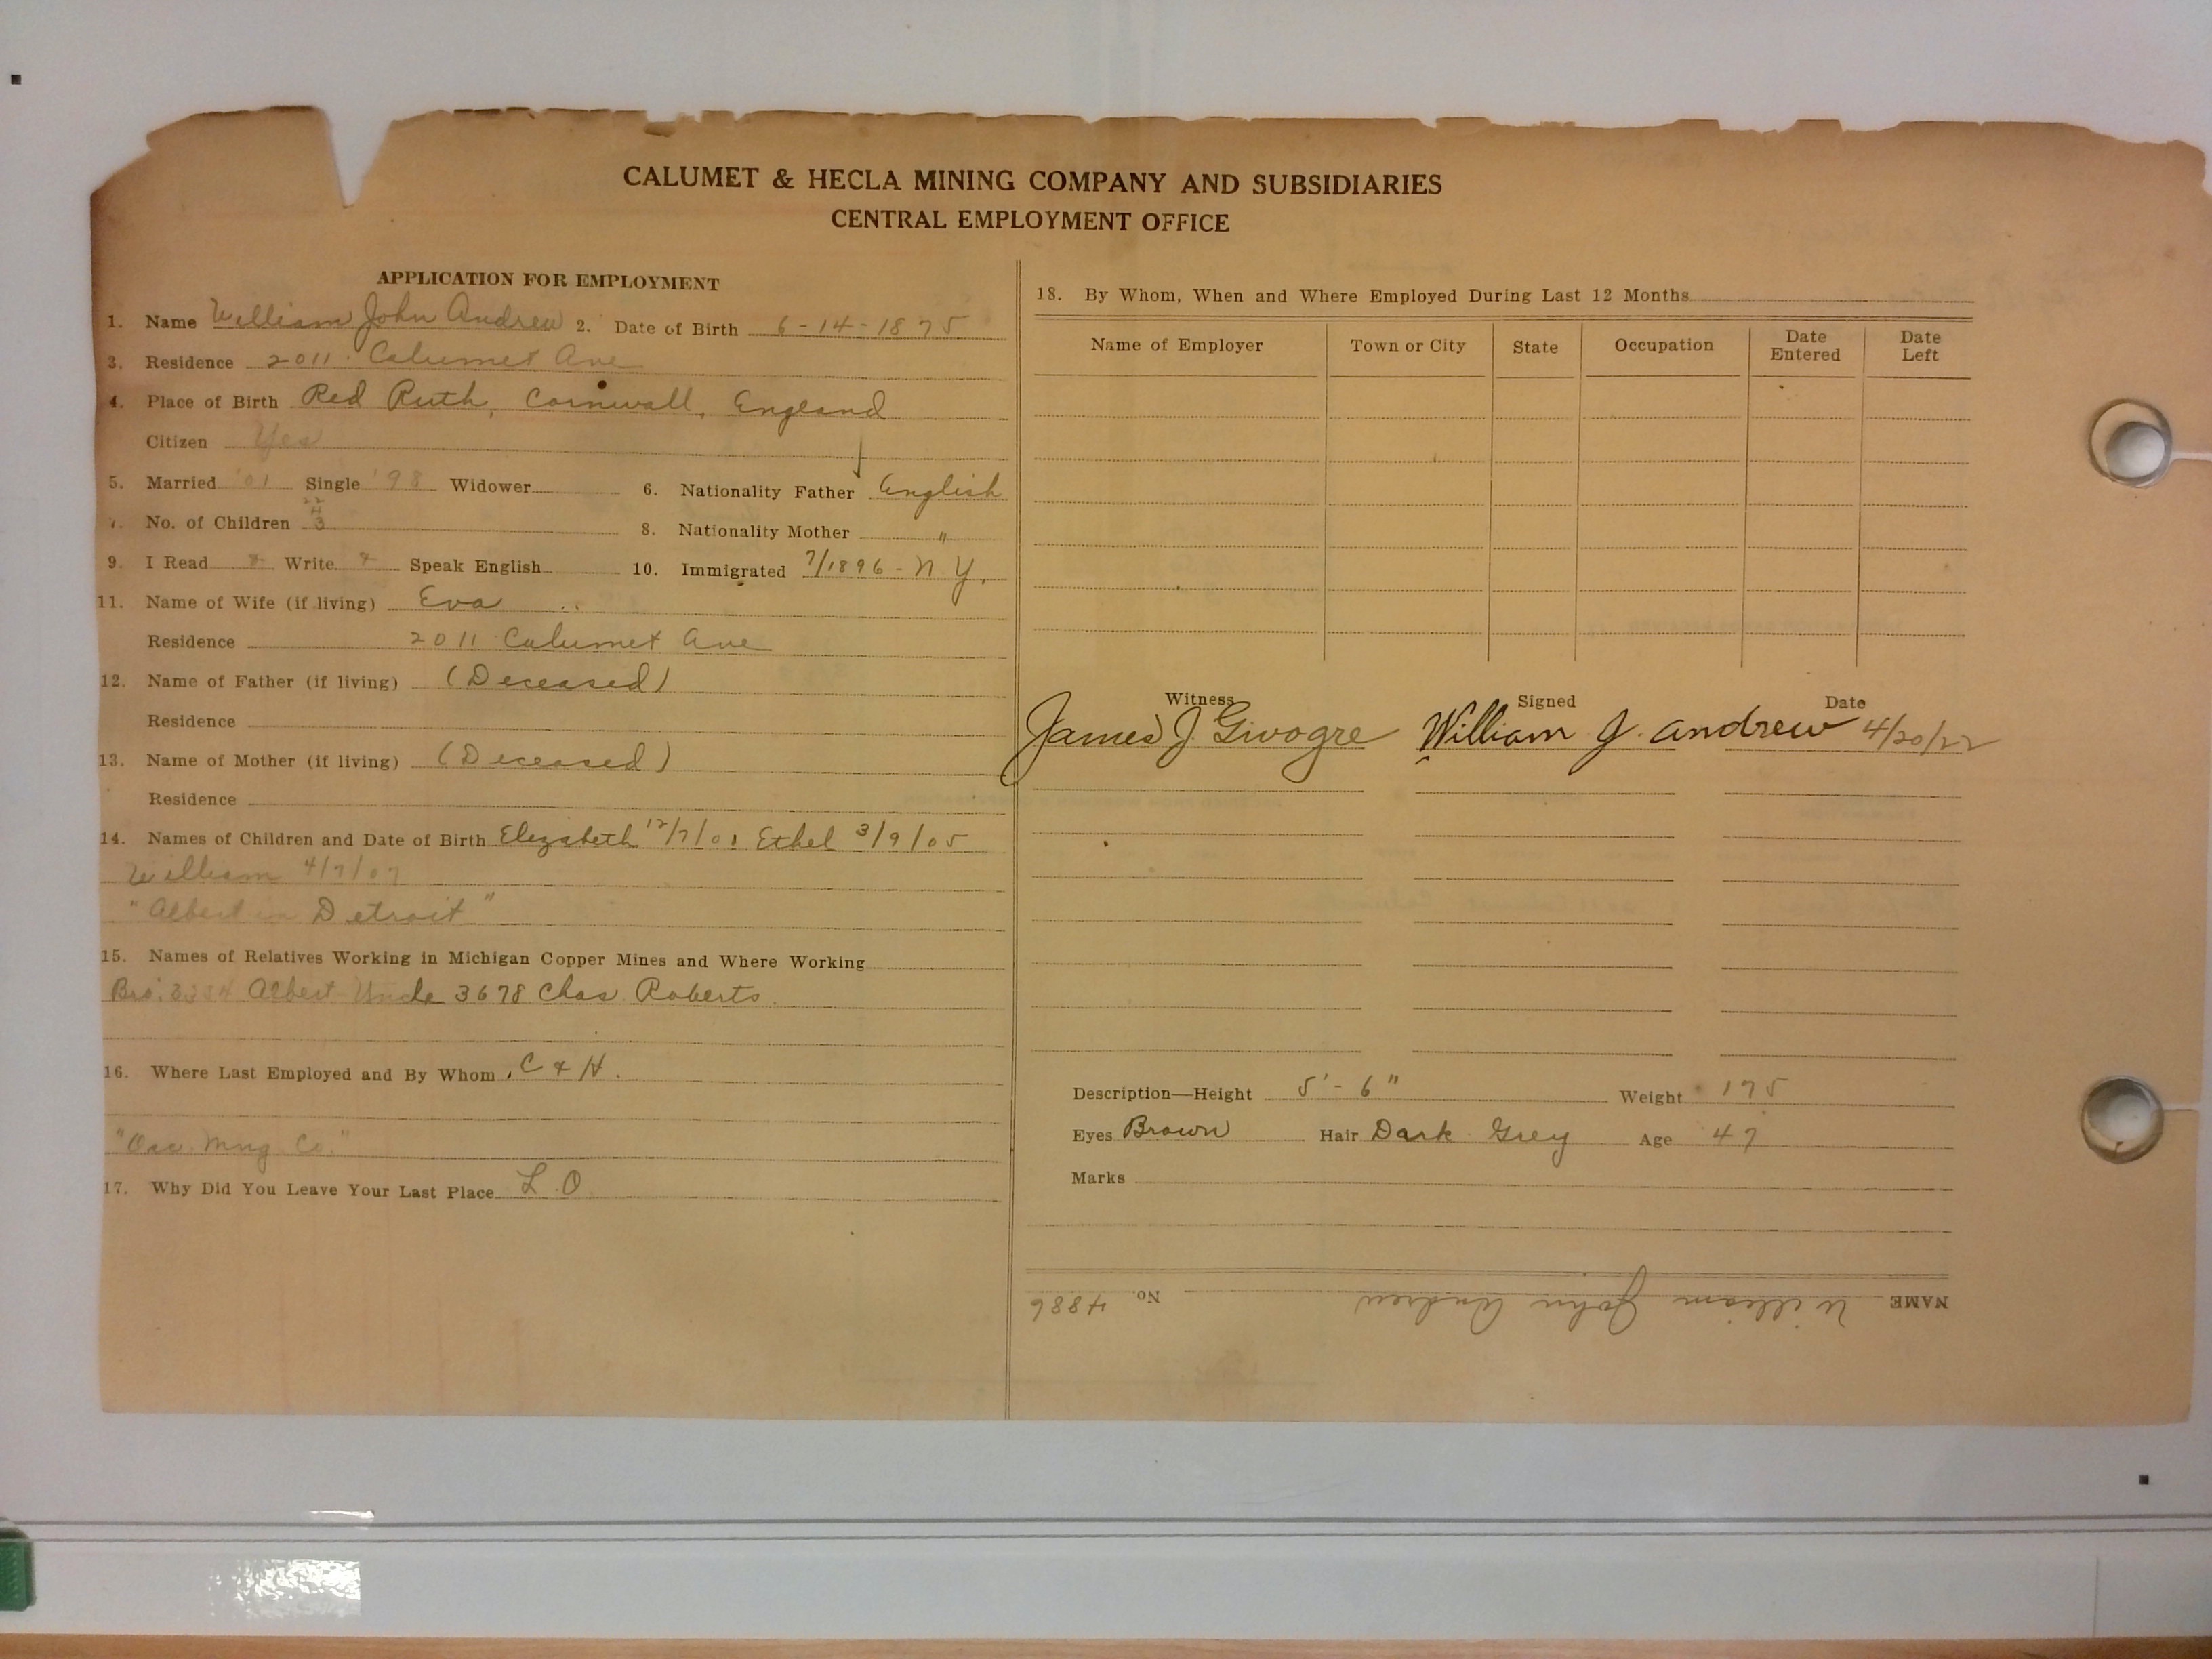 CALUMET & HECLA MINING COMPANY AND SUBSIDIARIES
CENTRAL EMPLOYMENT OFFICE
APPLICATION FOR EMPLOYMENT
1. Name William John Andrew 2. Date of Birth 6-14-1875
3. Residence 2011 Calumet Ave
4. Place of Birth Red Ruth, Cornwall, England
Citizen Yes
5. Married '01 Single '98 Widower 6. Nationality Father English
7. No. of Children 3 8. Nationality Mother "
9. I Read Write Speak English 10. Immigrated 7/1896 - N.Y.
11. Name of Wife (if living) Eva
Residence 2011 Calumet Ave
12. Name of Father (if living) (Deceased)
Residence
13. Name of Mother (if living) (Deceased)
Residence
14. Names of Children and Date of Birth Elizabeth 12/7/01 Ethel 3/9/05
William 4/7/07
"Albert in Detroit"
15. Names of Relatives Working in Michigan Copper Mines and Where Working
Bro. Albert Uncle 3678 Chas Roberts
16. Where Last Employed and By Whom C & H.
"Osc. Mng. Co."
17. Why Did You Leave Your Last Place L.O
18. By Whom, When and Where Employed During Last 12 Months
Name of Employer Town or City State Occupation Date Entered Date Left
Witness Signed Date
James J. William J. Andrew 4/20/22
Description—Height 5'-6" Weight 175
Eyes Brown Hair Dark Grey Age 47
Marks
NAME William John Andrew No. 4886